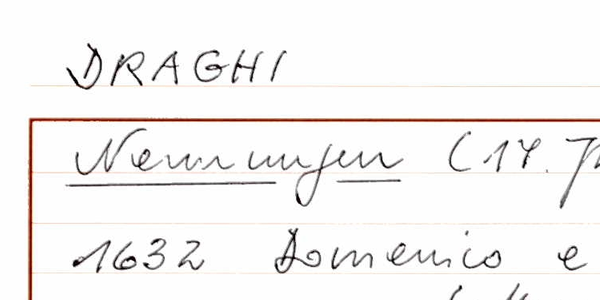 DRAGHI
Nennungen (17. Jh
1632 Domenico e